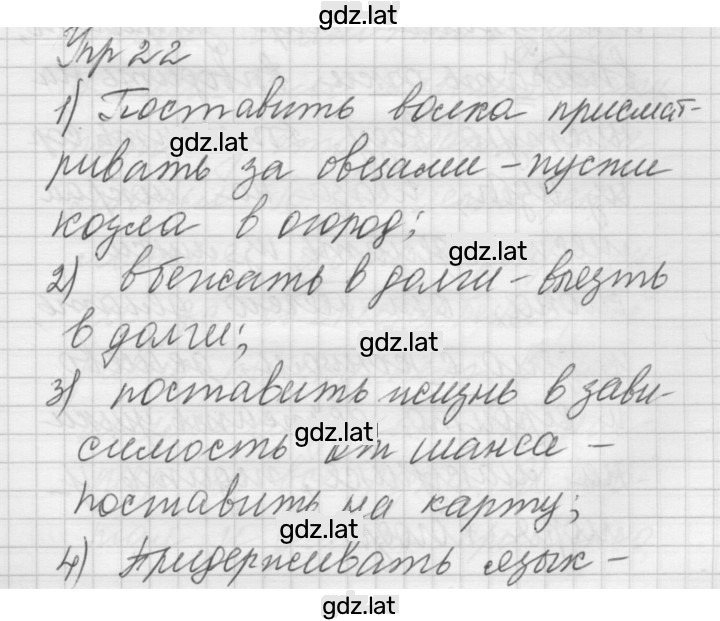 gdz.lat
Упр 22
1) Поставить волка присмат-
gdz.lat
ривать за овцами - пусти
козла в огород;
gdz.lat
2) вбежать в долги - влезть
в долги;
gdz.lat
3) поставить жизнь в зави-
gdz.lat
симость от шанса -
поставить на карту;
gdz.lat
4) Придерживать язык -
gdz.lat